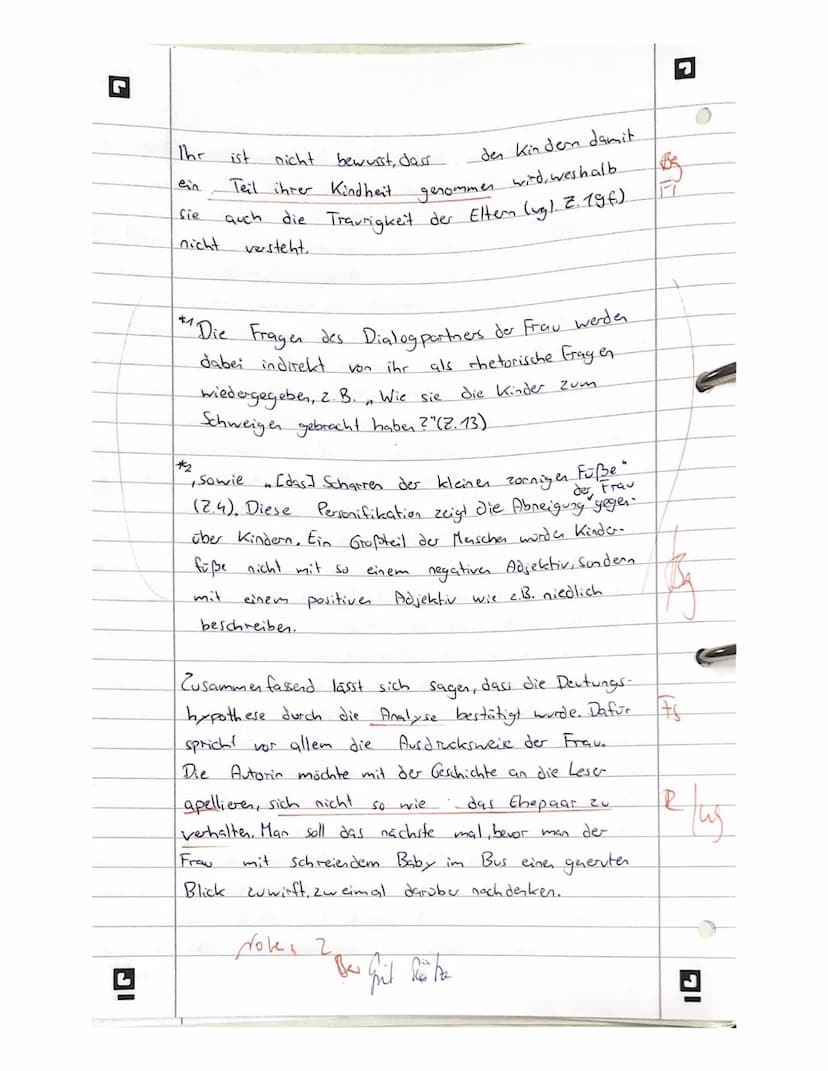 Ihr ist nicht bewusst, dass den Kindern damit
ein Teil ihrer Kindheit genommen wird, weshalb
sie auch die Traurigkeit der Eltern (vgl. Z. 19f.)
nicht versteht.
Bg
*1 Die Fragen des Dialogpartners der Frau werden
dabei indirekt von ihr als rhetorische Fragen
wiedergegeben, z. B. „Wie sie die Kinder zum
Schweigen gebracht haben?" (Z. 13)
*2
, sowie „[das] Scharren der kleinen zornigen Füße"
der Frau
(Z.4). Diese Personifikation zeigt die Abneigung gegen-
über Kindern. Ein Großteil der Menschen würden Kinder-
füße nicht mit so einem negativen Adjektiv, sondern
mit einem positiven Adjektiv wie z.B. niedlich
beschreiben.
Bg
Zusammenfassend lässt sich sagen, dass die Deutungs-
hypothese durch die Analyse bestätigt wurde. Dafür
spricht vor allem die Ausdrucksweise der Frau.
Die Autorin möchte mit der Geschichte an die Leser
apellieren, sich nicht so wie das Ehepaar zu
verhalten. Man soll das nächste mal, bevor man der
Frau mit schreiendem Baby im Bus einen genervten
Blick zuwirft, zweimal darüber nachdenken.
Fs
R